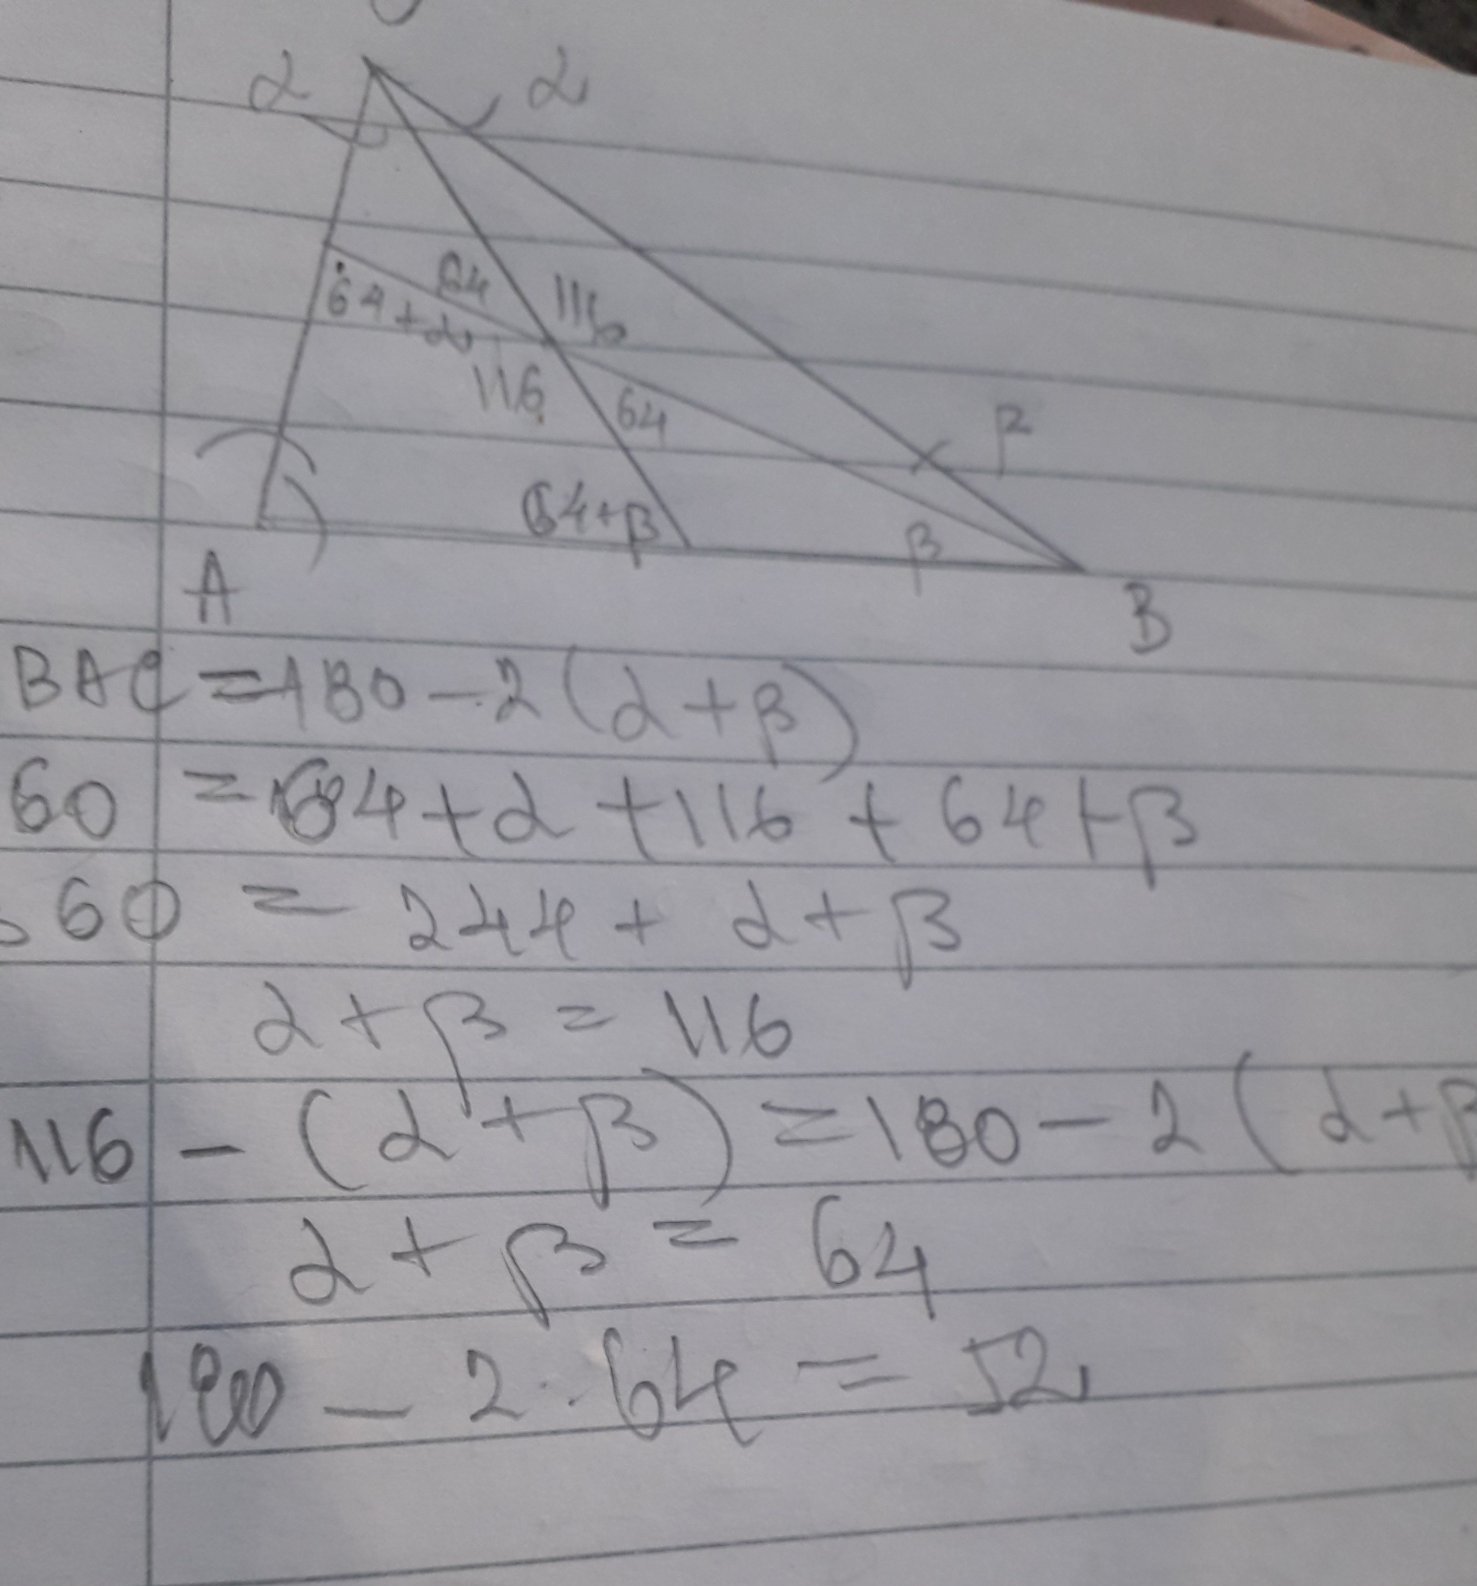 α α
64 116
64+α
116 64
β
64+β β
A B
BAC = 180 - 2(α+β)
60 = 64+α+116+64+β
360 = 244+α+β
α+β = 116
116 - (α+β) = 180 - 2(α+β
α+β = 64
180 - 2·64 = 52